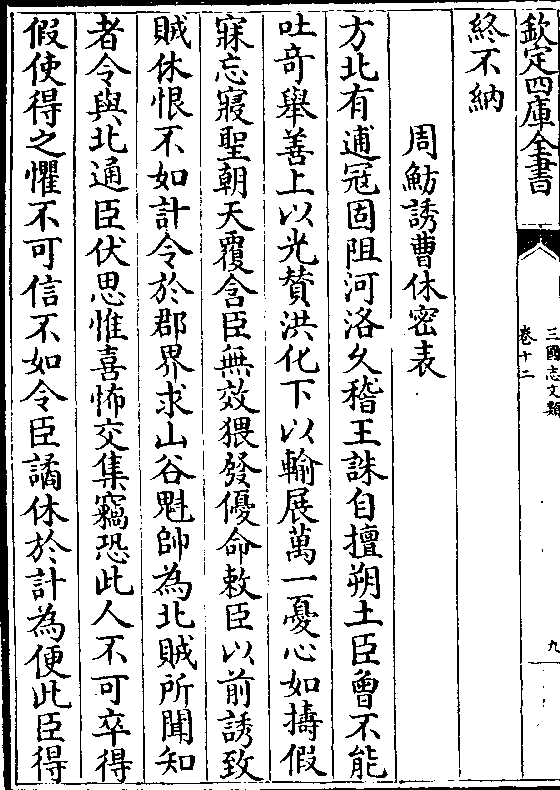 欽定四庫全書
三國志文類
卷十二
九
終不納
周魴誘曹休密表
方北有逋冦固阻河洛久稽王誅自擅朔土臣曾不能
吐奇舉善上以光賛洪化下以輸展萬一憂心如擣假
寐忘寢聖朝天覆含臣無效猥發優命敕臣以前誘致
賊休恨不如計令於郡界求山谷魁帥為北賊所聞知
者令與北通臣伏思惟喜怖交集竊恐此人不可卒得
假使得之懼不可信不如令臣譎休於計為便此臣得